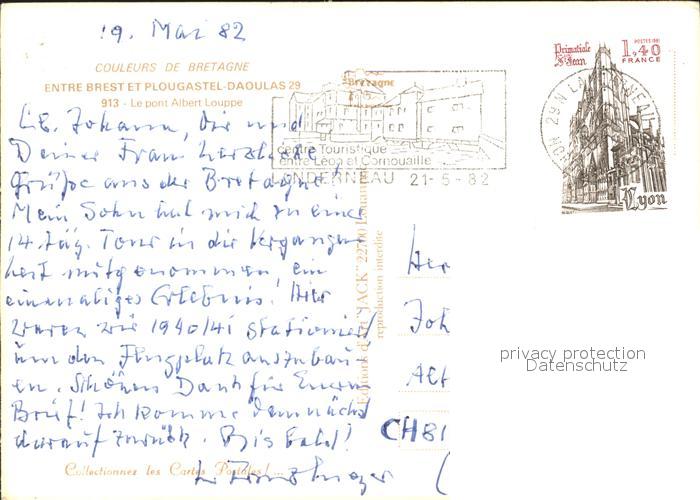 19. Mai 82
COULEURS DE BRETAGNE
ENTRE BREST ET PLOUGASTEL-DAOULAS 29
913 - Le pont Albert Louppe
Lb. Johann, Dir und
Deiner Frau herzliche
Grüße aus der Bretagne!
Mein Sohn hat mich zu einer
14 täg. Tour in die Vergangen
heit mitgenommen, ein
einmaliges Erlebnis! Hier
waren wir 1940/41 stationiert
um den Flugplatz auszubau-
en. Schönen Dank für Euren
Brief! Ich komme demnächst
darauf zurück. Bis bald!
Collectionnez les Cartes Postales!...
Bretagne
centre Touristique
entre Léon et Cornouaille
LANDERNEAU 21-5-82
"JACK"
reproduction interdite
Primatiale
St Jean
POSTES 1981
1,40
FRANCE
Lyon
Her
Joh
Alt
CH81
privacy protection
Datenschutz